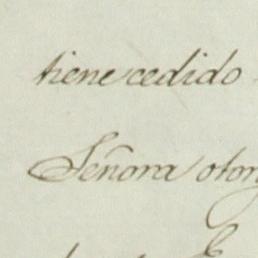 tiene cedido
Señora otorg